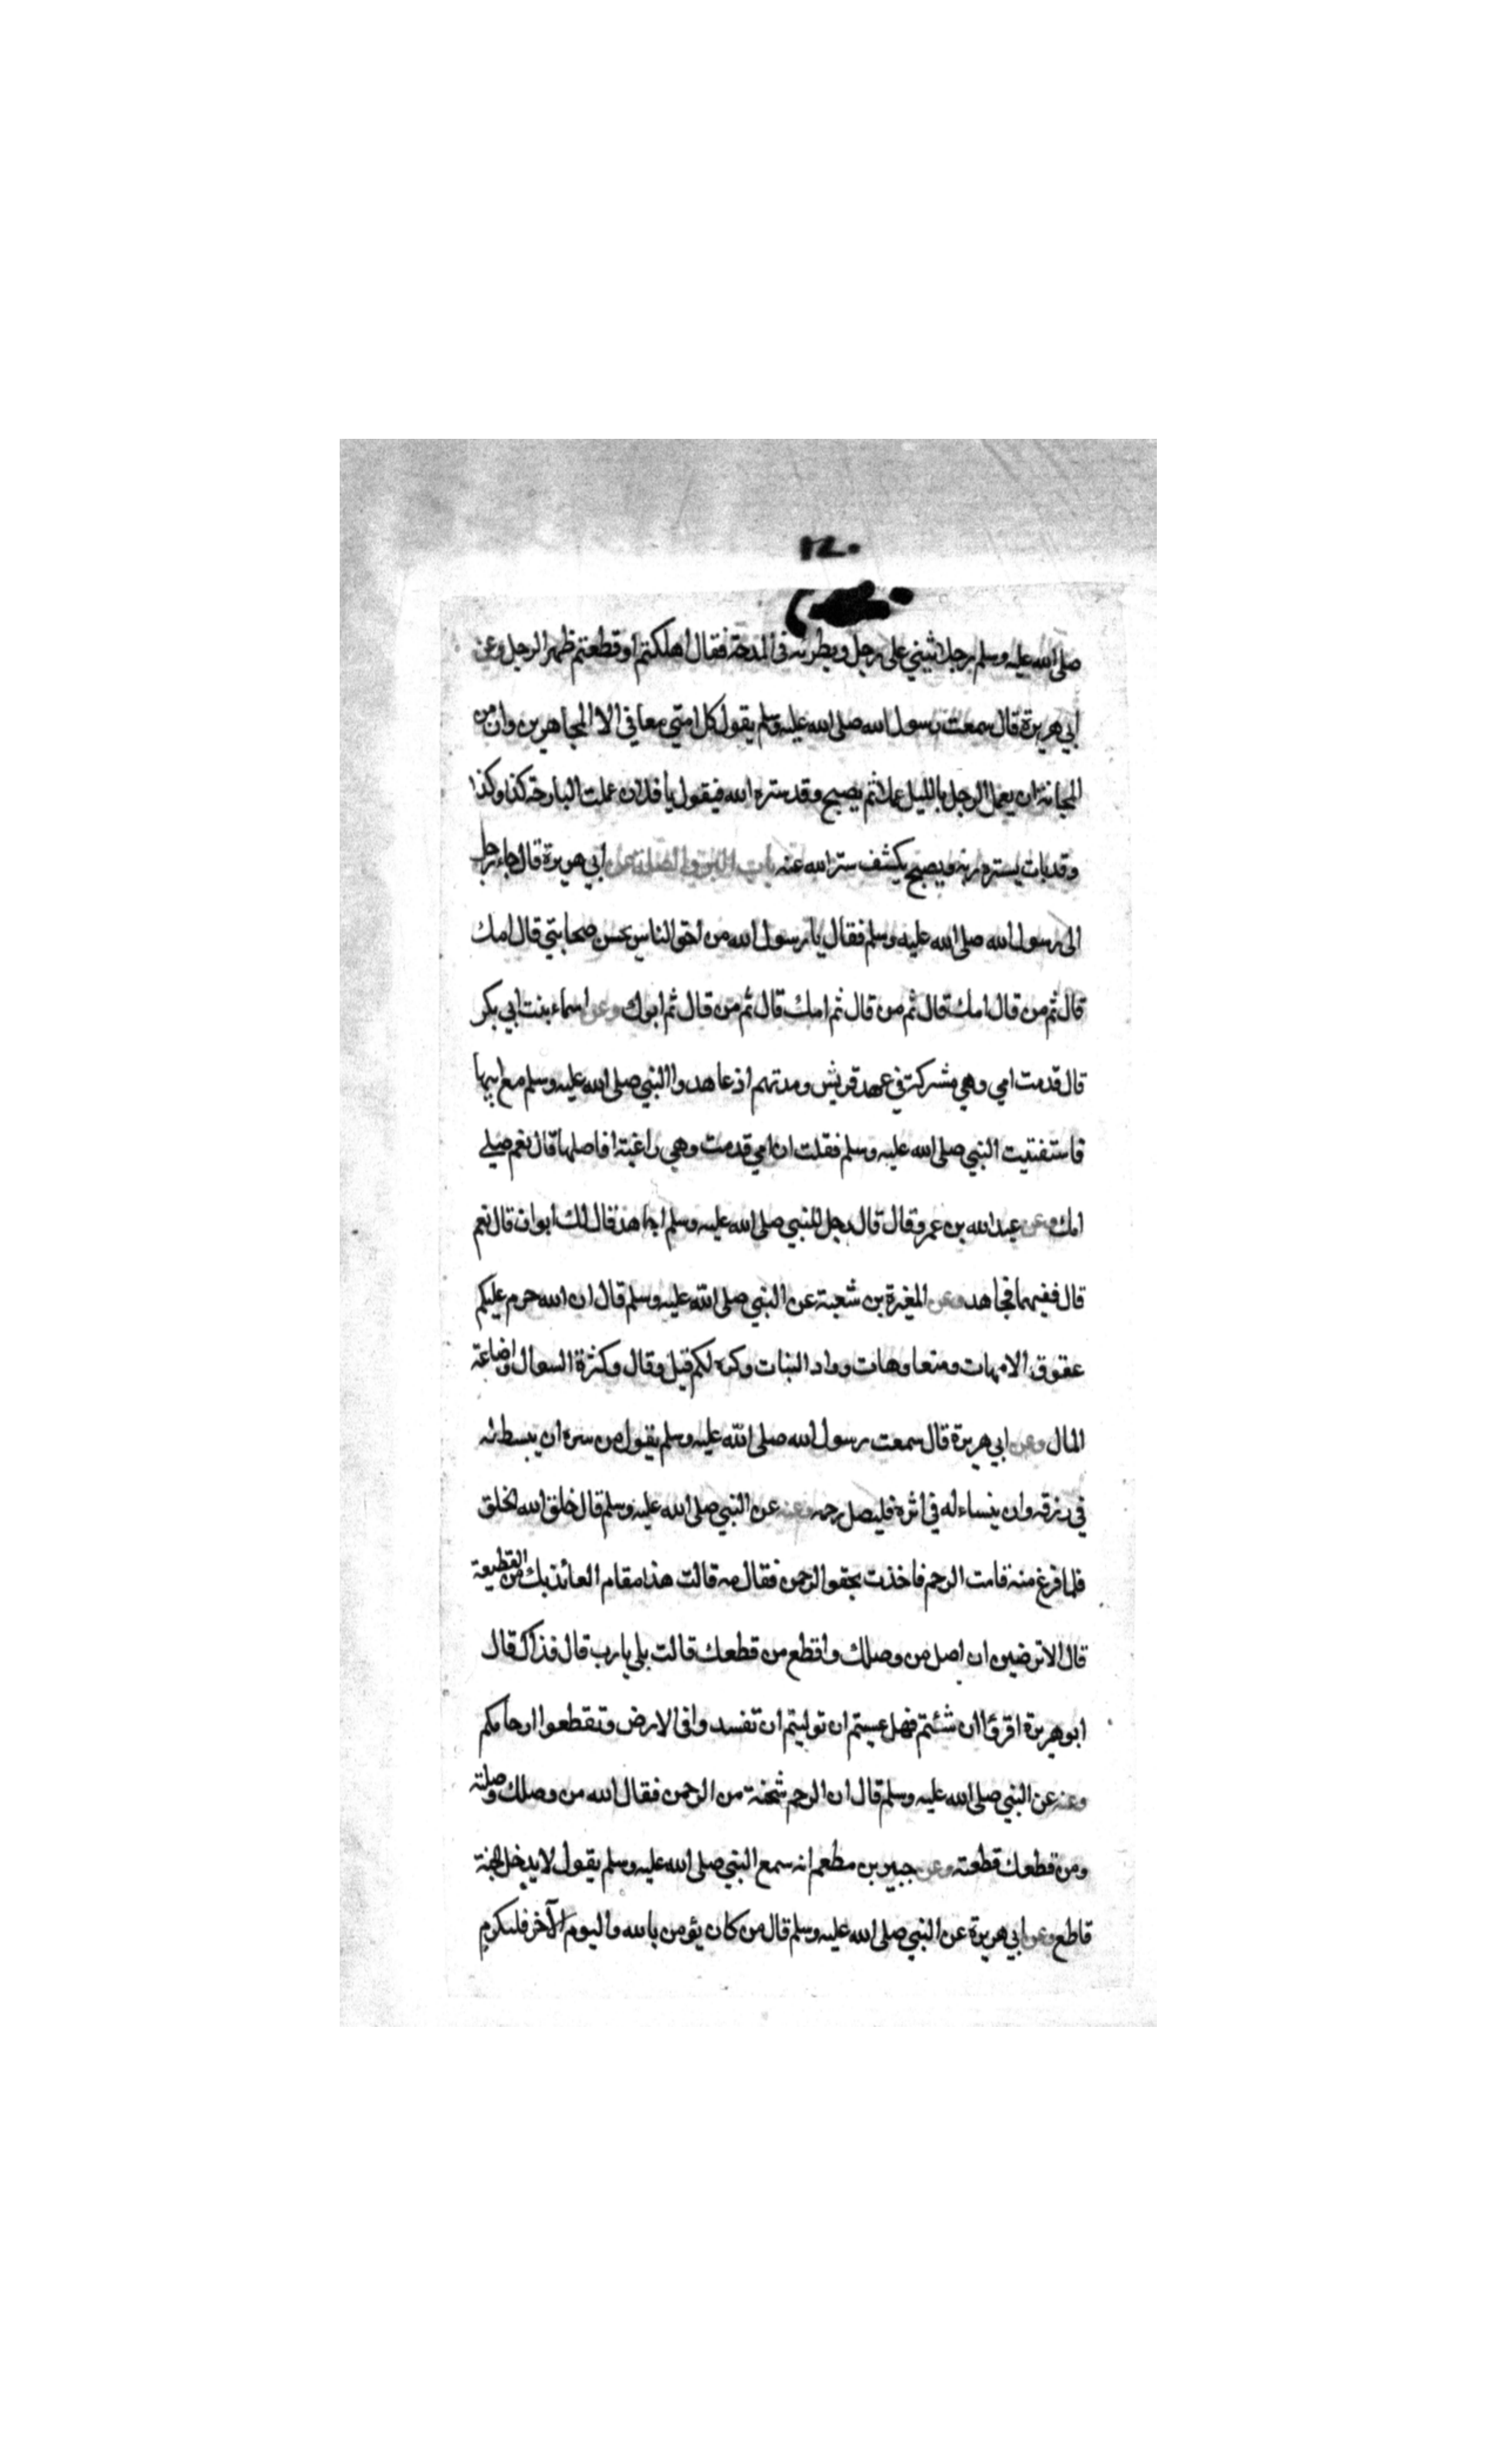 ١٢٠
صلى الله عليه وسلم رجلا يثني على رجل ويطريه فى المدحة فقال اهلكتم او قطعتم ظهر الرجل وعن
ابي هريرة قال سمعت رسول الله صلى الله عليه وسلم يقول كل امتي معافى الا المجاهرين وان من
المجانة ان يعمل الرجل بالليل عملا ثم يصبح وقد ستره الله فيقول يا فلان عملت البارحة كذا وكذا
وقد بات يستره ربه ويصبح يكشف ستر الله عنه باب البر والصلة عن ابي هريرة قال جاء رجل
الى رسول الله صلى الله عليه وسلم فقال يا رسول الله من احق الناس بحسن صحابتي قال امك
قال ثم من قال امك قال ثم من قال ثم امك قال ثم من قال ثم ابوك وعن اسماء بنت ابي بكر
قال قدمت امي وهي مشركة في عهد قريش ومدتهم اذ عاهدوا النبي صلى الله عليه وسلم مع ابيها
فاستفتيت النبي صلى الله عليه وسلم فقلت ان امي قدمت وهي راغبة افاصلها قال نعم صلي
امك وعن عبد الله بن عمرو قال قال رجل للنبي صلى الله عليه وسلم اجاهد قال لك ابوان قال نعم
قال ففيهما فجاهد وعن المغيرة بن شعبة عن النبي صلى الله عليه وسلم قال ان الله حرم عليكم
عقوق الامهات ومنعا وهات وواد البنات وكره لكم قيل وقال وكثرة السوال واضاعة
المال وعن ابي هريرة قال سمعت رسول الله صلى الله عليه وسلم يقول من سره ان يبسط له
في رزقه وان ينساء له في اثره فليصل رحمه وعنه عن النبي صلى الله عليه وسلم قال خلق الله الخلق
فلما فرغ منه قامت الرحم فاخذت بحقو الرحمن فقال مه قالت هذا مقام العائذ بك من القطيعة
قال الا ترضين ان اصل من وصلك واقطع من قطعك قالت بلى يا رب قال فذاك قال
ابو هريرة اقرؤا ان شئتم فهل عسيتم ان توليتم ان تفسدوا فى الارض وتقطعوا ارحامكم
وعنه عن النبي صلى الله عليه وسلم قال ان الرحم شجنة من الرحمن فقال الله من وصلك وصلته
ومن قطعك قطعته وعن جبير بن مطعم انه سمع النبي صلى الله عليه وسلم يقول لا يدخل الجنة
قاطع وعن ابي هريرة عن النبي صلى الله عليه وسلم قال من كان يؤمن بالله واليوم الآخر فليكرم